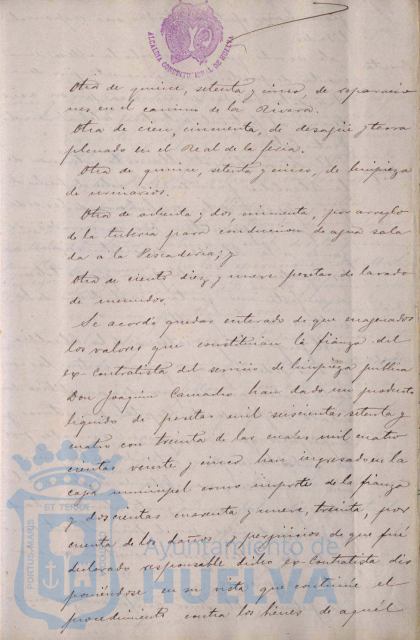 ALCALDIA CONSTITUCIONAL DE HUELVA
Otra de quince, setenta y cinco, de reparacio
nes en el camino de la Rivera.
Otra de cien, cincuenta, de desagüe y terra
plenado en el Real de la feria.
Otra de quince, setenta y cinco, de limpieza
de urinarios.
Otra de ochenta y dos, cincuenta, por arreglo
de la tuberia para conduccion de agua sala
da a la Pescaderia; y
Otra de ciento diez y nueve pesetas de lavado
de menudos.
Se acordó quedar enterado de que enagenados
los valores que constituian la fianza del
ex-contratista del servicio de limpieza publica
Don Joaquin Camacho han dado un producto
liquido de pesetas mil seiscientas setenta y
cuatro con treinta de las cuales mil cuatro
cientas veinte y cinco han ingresado en la
caja municipal como importe de la fianza
y doscientas cuarenta y nueve, treinta, por
cuenta de los daños y perjuicios de que fué
declarado responsable dicho ex-contratista dis
poniéndose en su vista que continúe el
procedimiento contra los bienes de aquél
PORTUS MARIS ET TERRÆ
Ayuntamiento de
HUELVA